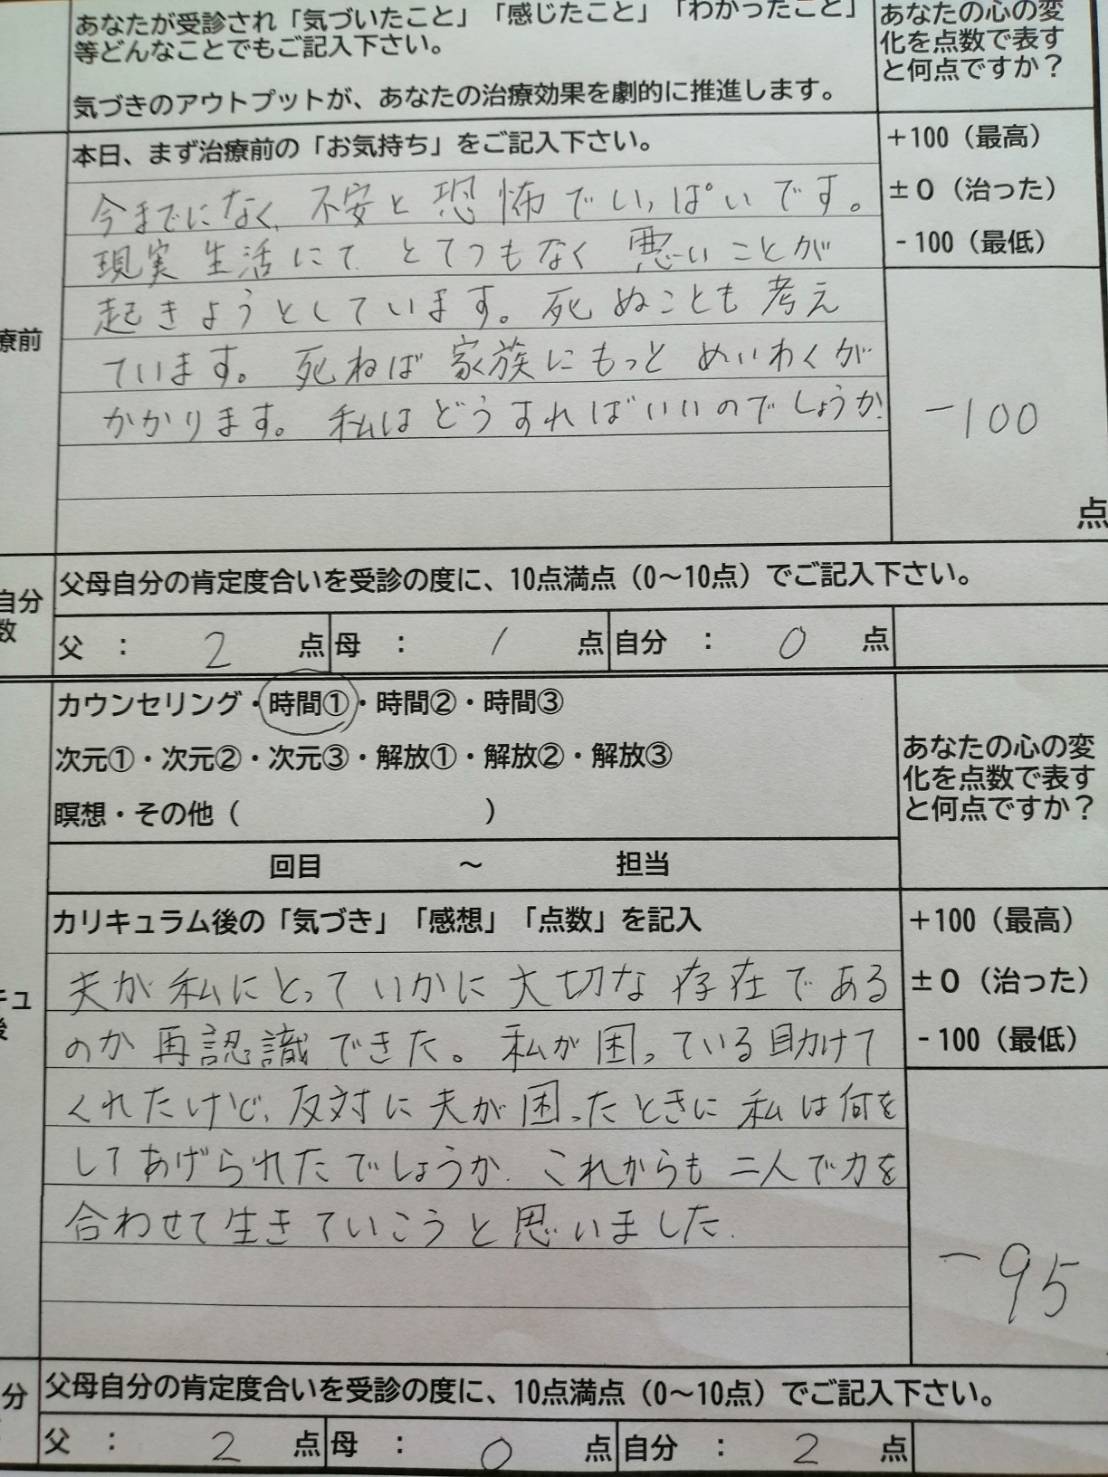 あなたが受診され「気づいたこと」「感じたこと」「わかったこと」
等どんなことでもご記入下さい。
気づきのアウトプットが、あなたの治療効果を劇的に推進します。
あなたの心の変
化を点数で表す
と何点ですか？
療前
本日、まず治療前の「お気持ち」をご記入下さい。
今までになく、不安と恐怖でいっぱいです。
現実生活にて とてつもなく 悪いことが
起きようとしています。死ぬことも考え
ています。死ねば家族にもっとめいわくが
かかります。私はどうすればいいのでしょうか.
+100（最高）
±0（治った）
-100（最低）
-100
点
自分
数
父母自分の肯定度合いを受診の度に、10点満点（0～10点）でご記入下さい。
父 ： 2 点 母 ： 1 点 自分 ： 0 点
カウンセリング・時間①・時間②・時間③
次元①・次元②・次元③・解放①・解放②・解放③
瞑想・その他（ ）
回目 ～ 担当
あなたの心の変
化を点数で表す
と何点ですか？
キュ
後
カリキュラム後の「気づき」「感想」「点数」を記入
夫が私にとっていかに大切な存在である
のか再認識できた。私が困っている助けて
くれたけど、反対に夫が困ったときに私は何を
してあげられたでしょうか. これからも二人で力を
合わせて生きていこうと思いました.
+100（最高）
±0（治った）
-100（最低）
-95
分
父母自分の肯定度合いを受診の度に、10点満点（0～10点）でご記入下さい。
父 ： 2 点 母 ： 0 点 自分 ： 2 点